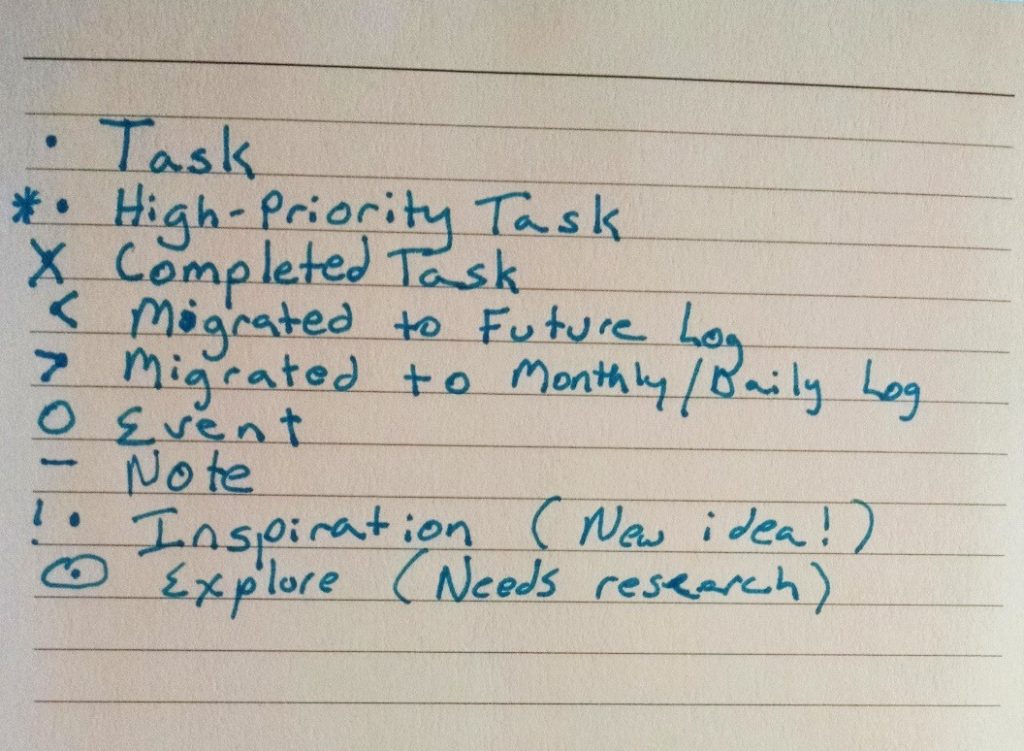 • Task
*• High-Priority Task
X Completed Task
< Migrated to Future Log
> Migrated to Monthly/Daily Log
O Event
– Note
!• Inspiration (New idea!)
⊙ Explore (Needs research)